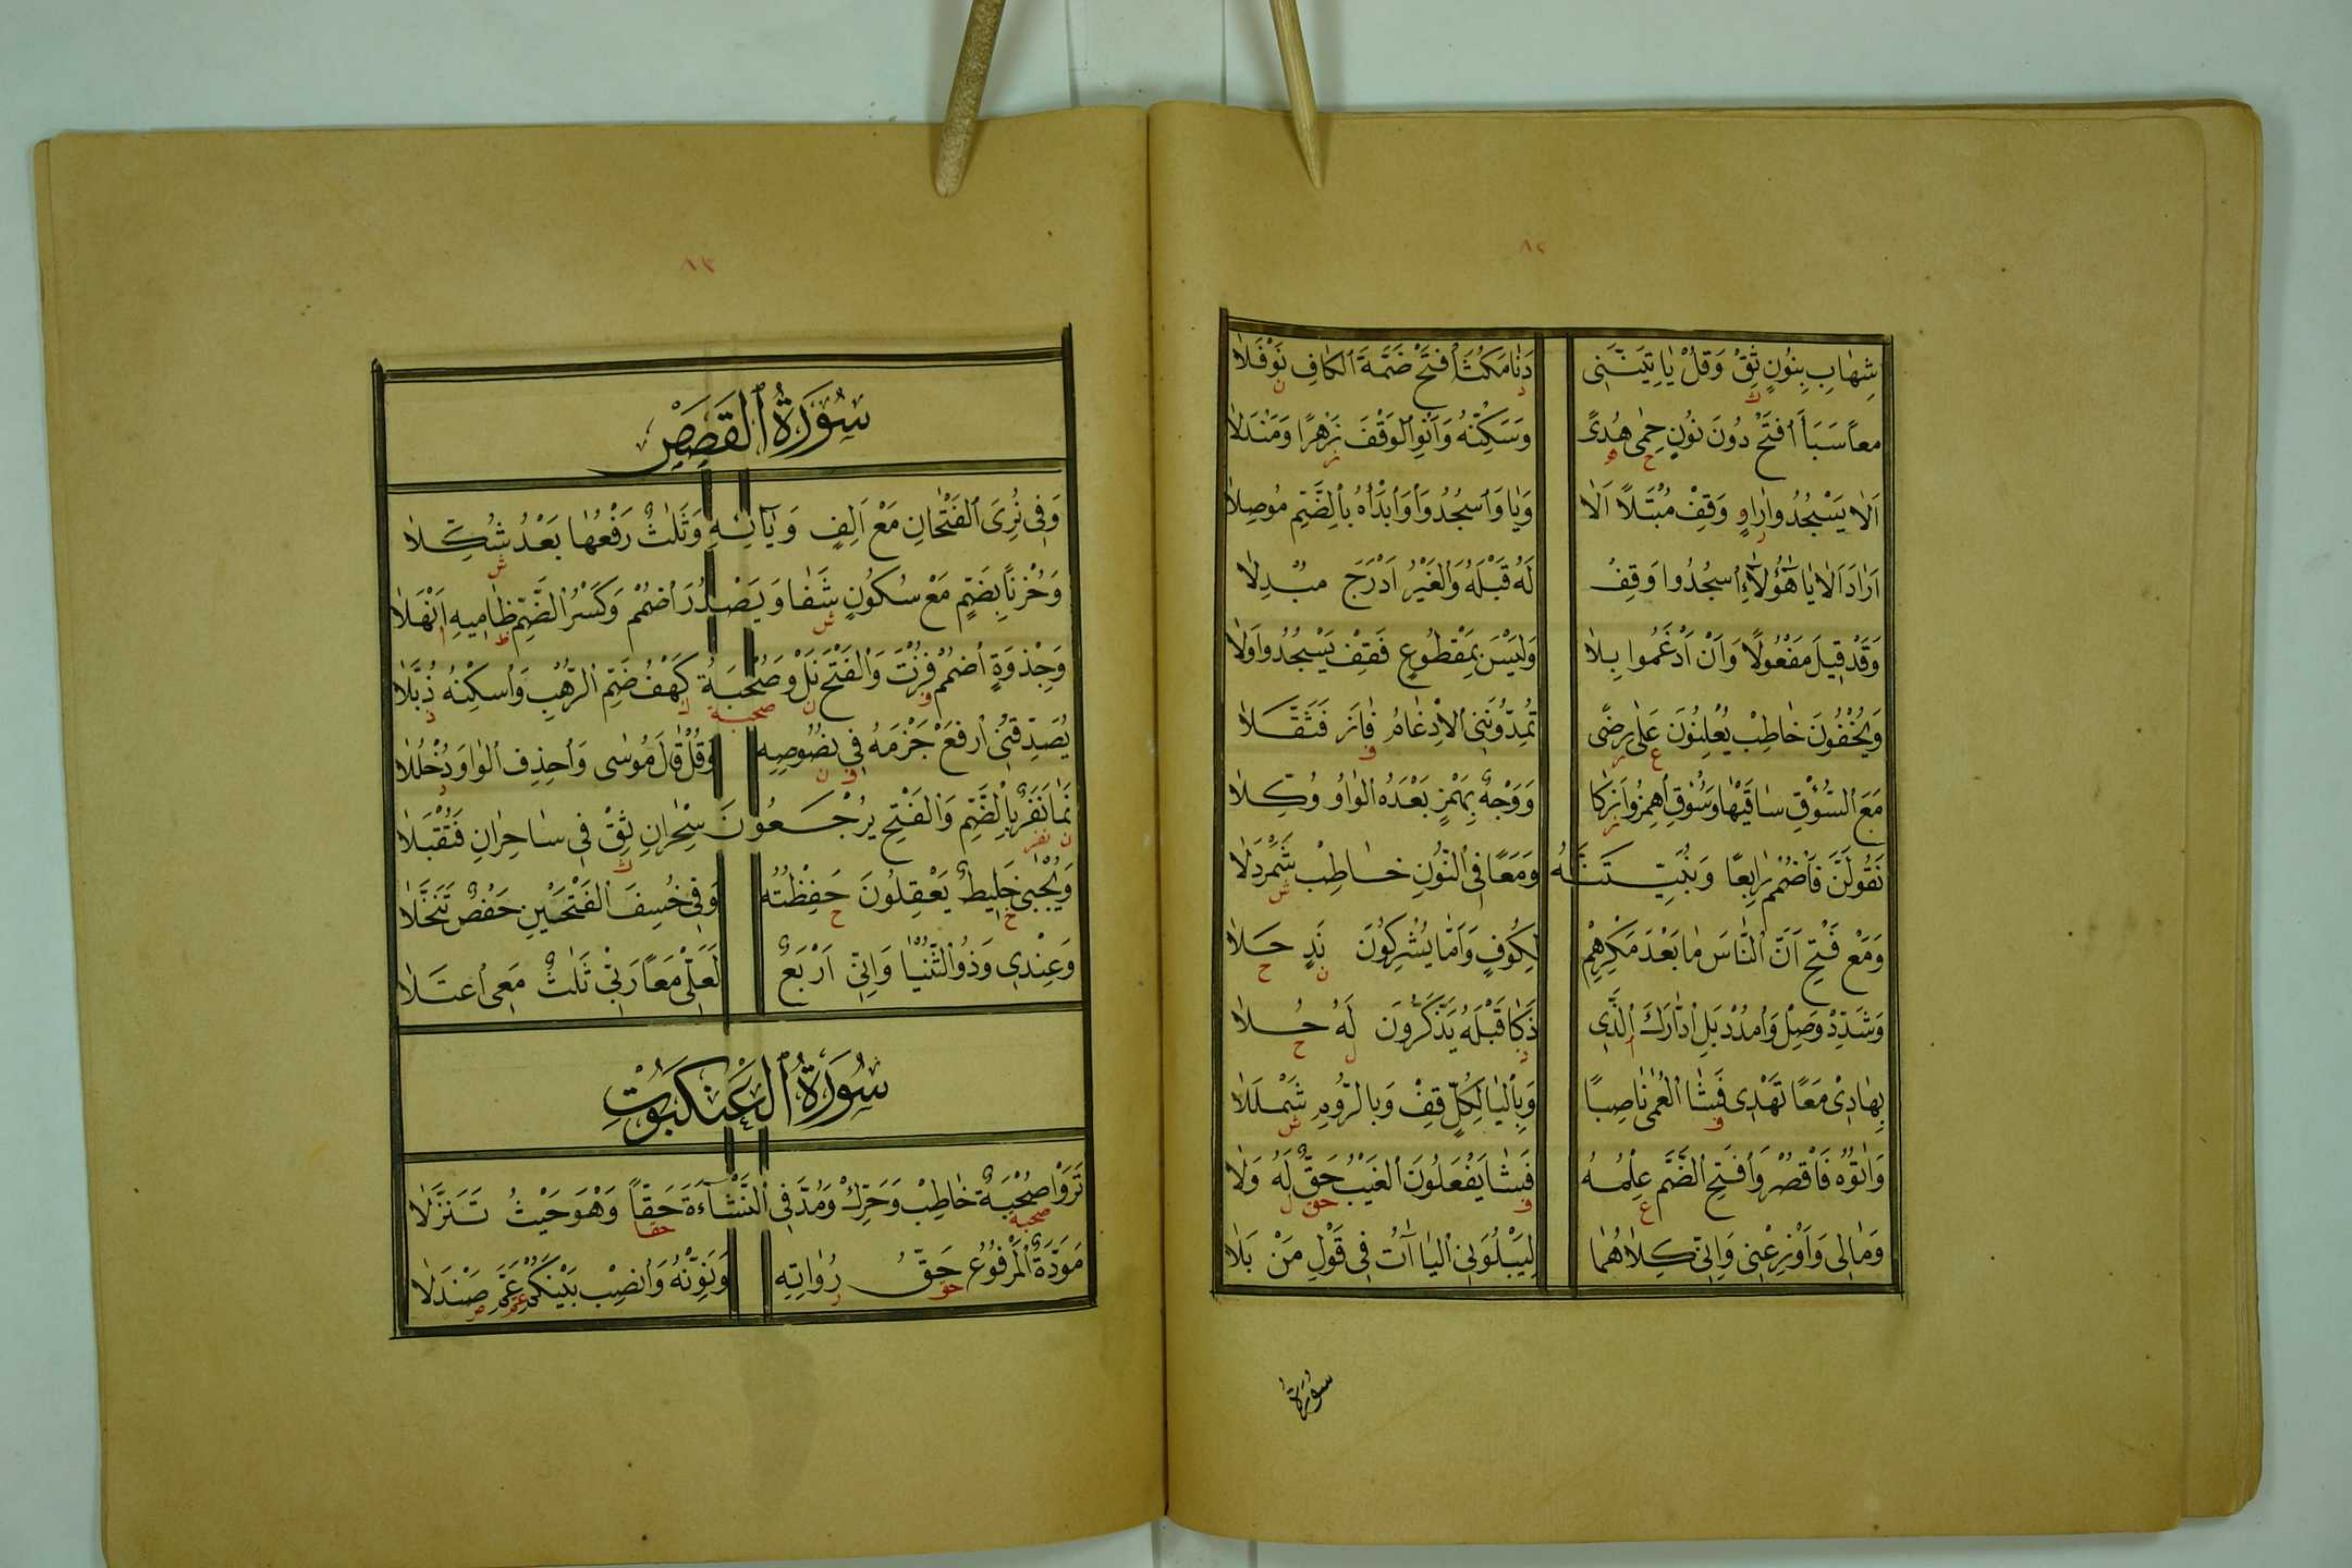 ٨٢
شِهَابِ بِنُونٍ ثِقْ وَقُلْ يَا تِيَنَّنِى دَنَا مَكُثَ اُفْتَحْ ضَمَّةَ الكَافِ نَوْفَلَا
ك د ن
مَعاً سَبَأَ اُفْتَحْ دُونَ نُونٍ حِمًى هُدًى وَسَكِّنْهُ وَاَنْوِ الوَقْفَ زَهْرًا وَمَنْدَلَا
ح ه ز
اَلَا يَسْجُدُوا رَاوٍ وَقِفْ مُبْتَلًا اَلَا وَيَا وَاسْجُدُوا وَاَبْدَأْهُ بِالضَّمِّ مُوصِلَا
ر
اَرَادَ اَلَا يَا هَؤُلَاءِ اُسْجُدُوا وَقِفْ لَهُ قَبْلَهُ وَالغَيْرُ اَدْرَجَ مُبْدِلَا
وَقَدْ قِيلَ مَفْعُولًا وَاَنْ اَدْغَمُوا بِلَا وَلَيْسَ بِمَقْطُوعٍ فَقِفْ يَسْجُدُوا وَلَا
وَيُخْفُونَ خَاطِبْ يُعْلِنُونَ عَلَى رِضًى تُمِدُّونَنِى الاِدْغَامُ فَازَ فَثَقَّلَا
ع ر ف
مَعَ السُّؤْقِ سَاقَيْهَا وَسُؤْقِ اُهْمِزُوا زَكَا وَوَجْهٌ بِهَمْزٍ بَعْدَهُ الوَاوُ وُكِّلَا
ز
نَقُولَنَّ فَاضْمُمْ رَابِعًا وَنُبَيِّتَنَّهُ وَمَعًا فِى النُّونِ خَاطِبْ شَمَرْدَلَا
ش
وَمَعْ فَتْحِ اَنَّ النَّاسَ مَا بَعْدَ مَكْرِهِمْ لِكُوفٍ وَاَمَّا يُشْرِكُونَ نَدٍ حَلَا
ن ح
وَشَدِّدْ وَصِلْ وَامْدُدْ بَلِ اِدَّارَكَ الَّذِى ذَكَا قَبْلَهُ يَذَّكَّرُونَ لَهُ حُلَا
ا ذ ل ح
بِهَادِى مَعًا تَهْدِى فَشَا العُمْىَ نَاصِبًا وَبِاليَا لِكُلٍّ قِفْ وَبِالرُّومِ شَمْلَلَا
ف ش
وَاَتَوْهُ فَاقْصُرْ وَافْتَحِ الضَّمَّ عِلْمُهُ فَشَا يَفْعَلُونَ الغَيْبُ حَقٌّ لَهُ وَلَا
ع ف حق ل
وَمَالِى وَاَوْزِعْنِى وَاِنِّى كِلَاهُمَا لِيَبْلُوَنِى اليَاآتُ فِى قَوْلِ مَنْ بَلَا
سورة
٨٣
سُورَةُ القَصَصِ
وَفِى نُرِىَ الفَتْحَانِ مَعْ اَلِفٍ وَيَائِهِ وَثَلَاثٌ رَفْعُهَا بَعْدُ شُكِّلَا
ش
وَحُزْنًا بِضَمٍّ مَعْ سُكُونٍ شَفَا وَيَصْدُرَ اُضْمُمْ وَكَسْرُ الضَّمِّ ظَامِيهِ اَنْهَلَا
ش ظ ا
وَجِذْوَةٍ اُضْمُمْ فُزْتَ وَالفَتْحَ نَلْ وَصُحْبَةُ كَهْفُ ضَمِّ الرَّهْبِ وَاُسْكِنْهُ ذُبَّلَا
ف ن صحبة ك ذ
يُصَدِّقُنِى اُرْفَعْ جَزْمَهُ فِى نُصُوصِهِ وَقُلْ قَالَ مُوسَى وَاُحْذِفِ الوَاوَ دُخْلُلَا
ف ن د
نَمَا نَفَرٌ بِالضَّمِّ وَالفَتْحِ يَرْجِعُونَ سِحْرَانِ ثِقْ فِى سَاحِرَانِ فَتُقْبَلَا
ن نفر ث
وَيُجْبَى خَلِيطٌ يَعْقِلُونَ حَفِظْتُهُ وَفِى خُسِفَ الفَتْحَيْنِ حَفْصٌ تَنَخَّلَا
خ ح
وَعِنْدِى وَذُو الثُّنْيَا وَاِنِّى اَرْبَعٌ لَعَلِّى مَعًا رَبِّى ثَلَاثٌ مَعِى اُعْتَلَا
سُورَةُ العَنْكَبُوتِ
تَرَوْا صُحْبَةٌ خَاطِبْ وَحَرِّكْ وَمُدَّ فِى النَّشَاءَةِ حَقًّا وَهْوَ حَيْثُ تَنَزَّلَا
صحبة حقا
مَوَدَّةٌ المَرْفُوعُ حَقُّ رُوَاتِهِ وَنَوِّنْهُ وَانْصِبْ بَيْنَكُمْ عَمَّ صَنْدَلَا
حق ر عم ص